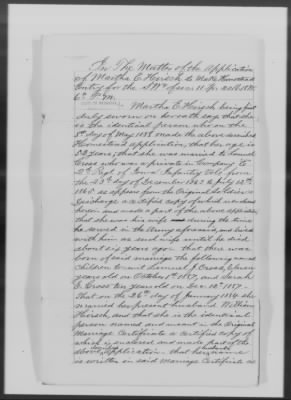 In The Matter of the Application
of Martha E. Hirsch to Make Homestead
Entry for the
6th P.M.
Martha E. Hirsch being first
duly sworn on her oath says that she
is the identical person who on the
5th day of May 1888 made the above described
Homestead application, that her age is
52 years; that she was married to Samuel
Cross who was a private in Company
2nd Regt of Iowa Infantry Vols from
the 23rd day of December 1863 to July 12th
1865 as appears from the Original Soldiers
Discharge a certified copy of which is
hereon and made a part of the above application
that she was his wife during the time
he served in the Army aforesaid, and lived
with him as such wife until he died
about six years ago that there was
born of said marriage the following named
children to wit Samuel J. Cross, Eleven
years old on October 1st 1887, and Sarah
E. Cross ten years old on Dec 12th 1887.
That on the 26th day of January 1886 she
married her present husband William
Hirsch, and that she is the identical
person named and meant in the Original
Marriage Certificate a certified copy of
which is endorsed and made part of the
above application that her name
is written in said Marriage Certificate as